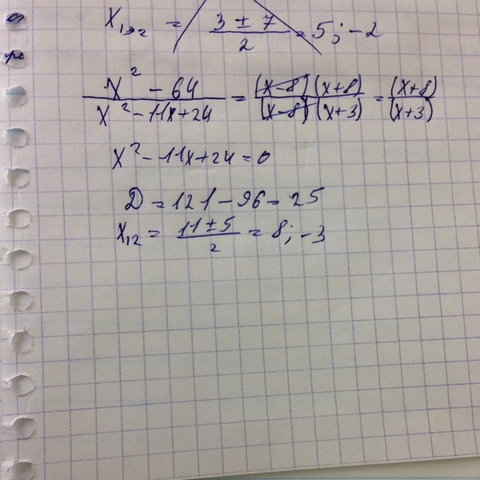 X₁,₂ = (3 ± 7)/2 = 5; -2
(x² - 64)/(x² - 11x + 24) = ((x-8)(x+8))/((x-8)(x+3)) = (x+8)/(x+3)
x² - 11x + 24 = 0
D = 121 - 96 = 25
x₁₂ = (11 ± 5)/2 = 8; -3